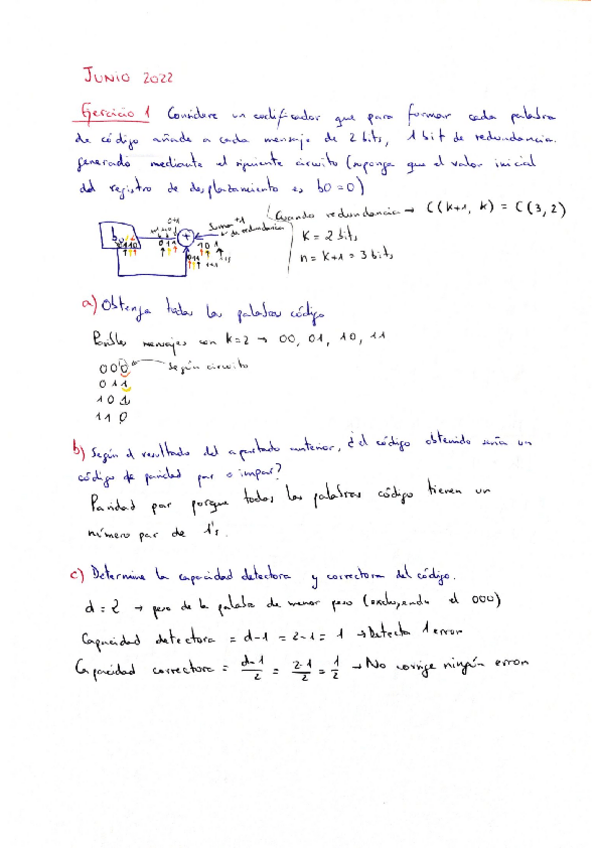 JUNIO 2022
Ejercicio 1 Considere un codificador que para formar cada palabra
de código añade a cada mensaje de 2 bits, 1 bit de redundancia.
generado mediante el siguiente circuito (suponga que el valor inicial
del registro de desplazamiento es b0=0)
Cuando redundancia → C(k+1, k) = C(3,2)
K = 2 bits
n = k+1 = 3 bits
a) Obtenga todas las palabras código
Posibles mensajes con k=2 → 00, 01, 10, 11
000 ← según circuito
011
101
110
b) Según el resultado del apartado anterior, ¿el código obtenido sería un
código de paridad par o impar?
Paridad par porque todas las palabras código tienen un
número par de 1's.
c) Determine la capacidad detectora y correctora del código.
d = 2 → peso de la palabra de menor peso (excluyendo el 000)
Capacidad detectora = d-1 = 2-1 = 1 → Detecta 1 error
Capacidad correctora = d-1/2 = 2-1/2 = 1/2 → No corrige ningún error